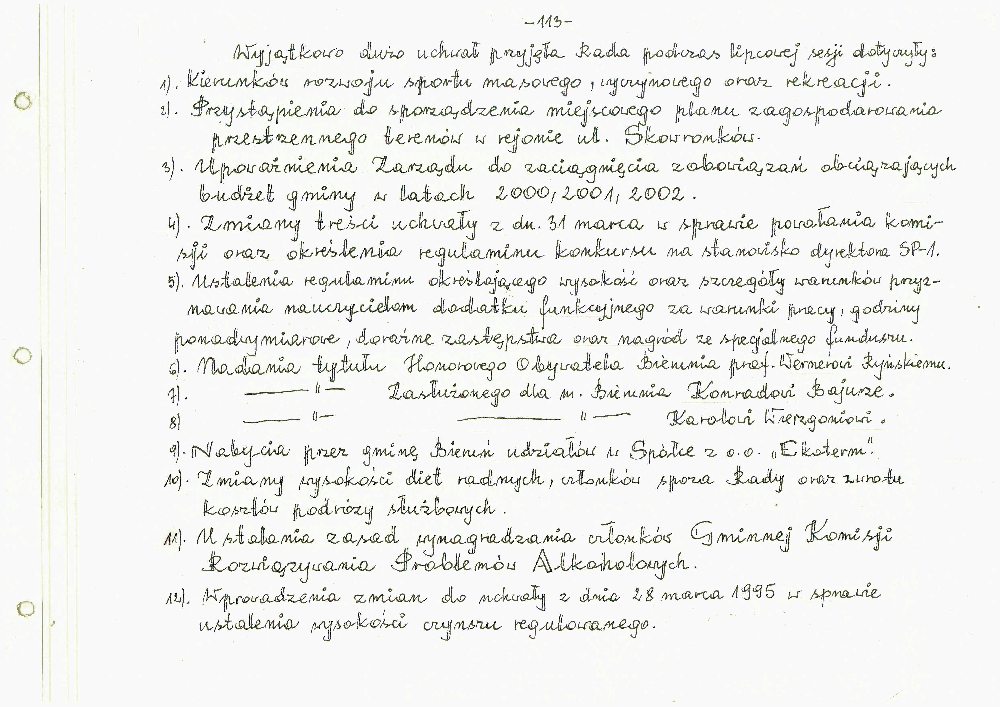 -113-
Wyjątkowo dużo uchwał przyjęła Rada podczas lipcowej sesji dotyczyły:
1). Kierunków rozwoju sportu masowego, wyczynowego oraz rekreacji.
2). Przystąpienia do sporządzenia miejscowego planu zagospodarowania
przestrzennego terenów w rejonie ul. Skowronków.
3). Upoważnienia Zarządu do zaciągnięcia zobowiązań obciążających
budżet gminy w latach 2000, 2001, 2002.
4). Zmiany treści uchwały z dn. 31 marca w sprawie powołania komi-
sji oraz określenia regulaminu konkursu na stanowisko dyrektora SP-1.
5). Ustalenia regulaminu określającego wysokość oraz szczegóły warunków przyz-
nawania nauczycielom dodatku funkcyjnego za warunki pracy, godziny
ponadwymiarowe, doraźne zastępstwa oraz nagród ze specjalnego funduszu.
6). Nadania tytułu Honorowego Obywatela Bierunia prof. Wernerowi Ryńskiemu.
7). —— " — Zasłużonego dla m. Bierunia Konradowi Bajurze.
8) —— " — —— " — Karolowi Wierzgoniowi.
9). Nabycia przez gminę Bieruń udziałów w Spółce z o.o. „Ekoterm".
10). Zmiany wysokości diet radnych, członków spoza Rady oraz zwrotu
kosztów podróży służbowych.
11). Ustalania zasad wynagradzania członków Gminnej Komisji
Rozwiązywania Problemów Alkoholowych.
12). Wprowadzenia zmian do uchwały z dnia 28 marca 1995 w sprawie
ustalenia wysokości czynszu regulowanego.